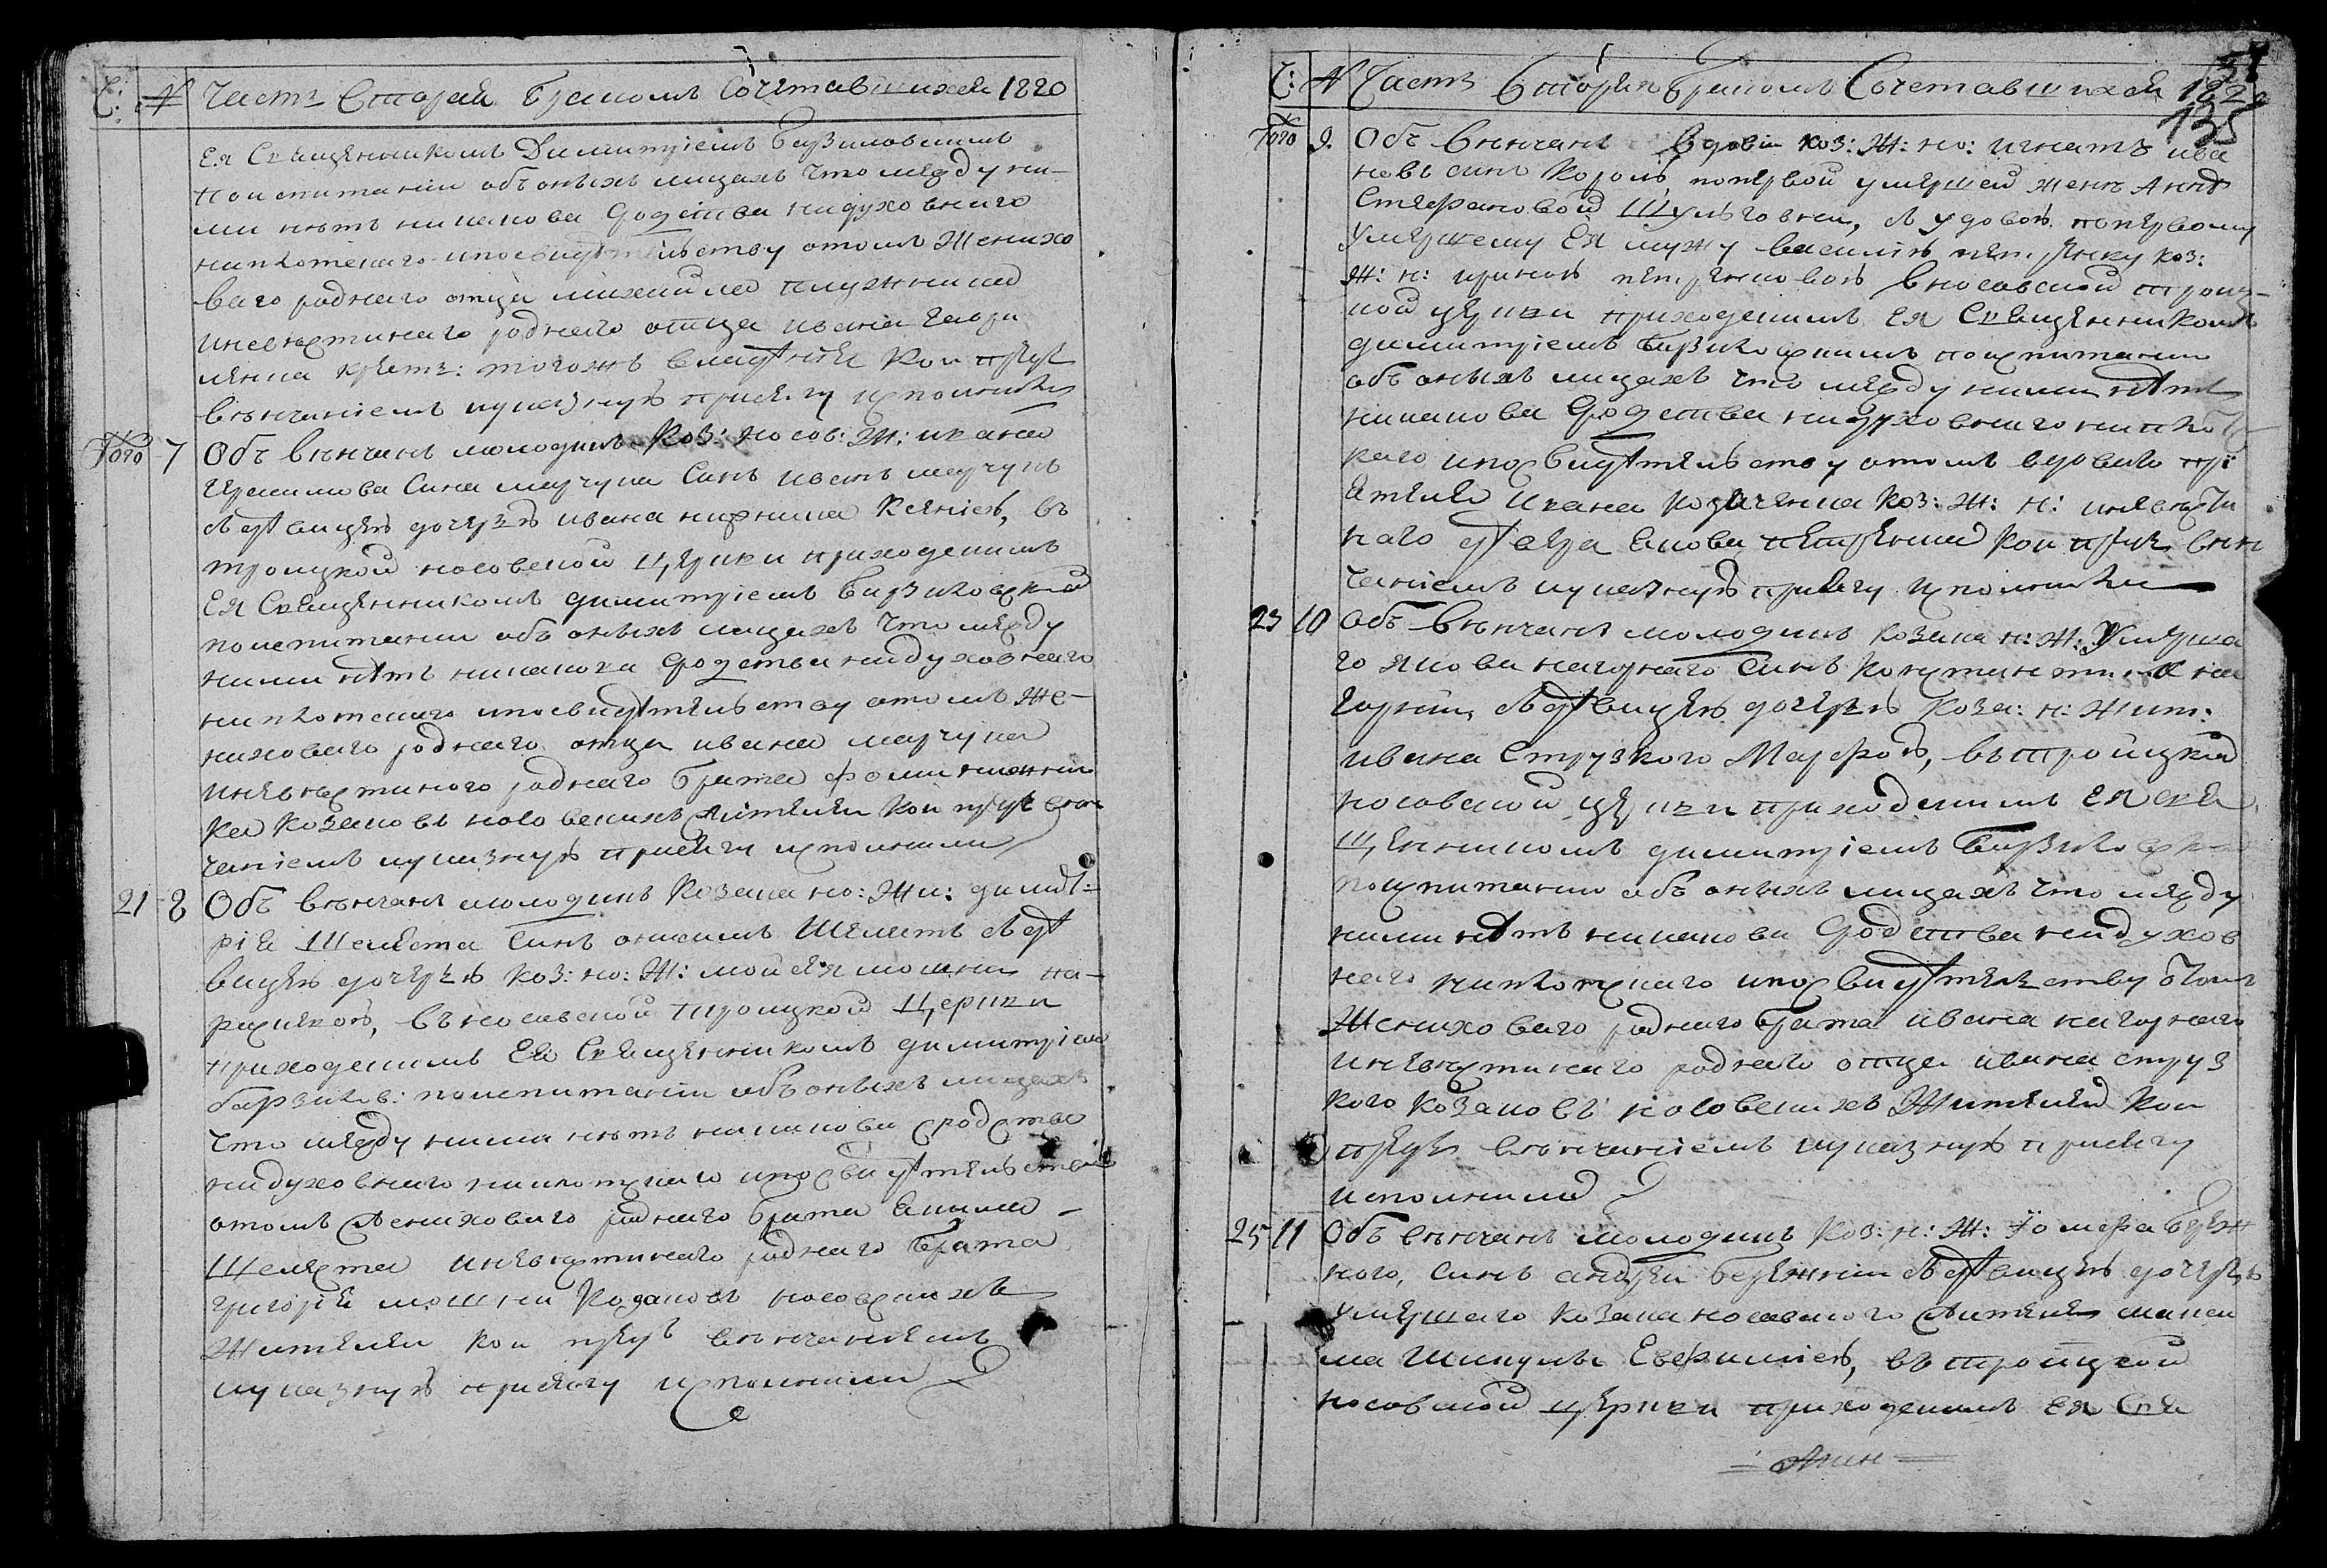 Ч: № Часть Вторая Бракомъ Сочетавшихся 1820
Ея Священникомъ Димитріемъ Базиловскимъ
по испитаніи объ оныхъ лицахъ что между ни-
ми нѣтъ никакова Сродства ни духовнаго
ни плотскаго и посвидѣтельству отомъ женихо
ваго роднаго отца михаила
и невѣстинаго роднаго отца ивана Гаври
ленка тогожъ кои предъ
вѣнчаніемъ иуказную присягу исполнили
Того 7 Объ вѣнчанъ молодикъ Коз: носов: Ж: ивана
Герасимова Сина марчука Синъ иванъ марчукъ
з дѣвицею дочерью ивана Ксеніею, въ
троицкой носовской церкви приходскимъ
Ея Священникомъ димитріемъ
поиспитаніи объ оныхъ лицахъ что между
ними нѣтъ никакова Сродства ни духовнаго
ни плотскаго и посвидѣтельству отомъ же-
нихового роднаго отца ивана марчука
и невѣстиного роднаго брата фоми
козаковъ носовскихъ жителей кои предъ вѣн
чаніемъ иуказную присягу исполнили
21 8 Объ вѣнчанъ молодикъ козака но: Жи: димит:
рія Шелеста Синъ онисимъ Шелестъ з дѣ
вицею дочерью коз: но: Ж: мойсея мошки па-
раскевою, въ носовской троицкой Церкви
приходскимъ Ея Священникомъ димитріемъ
поиспитаніи объ оныхъ лицахъ
что между ними нѣтъ никакова сродства
ни духовнаго ни плотскаго и посвидѣтельству
отомъ женихового роднаго брата
Шелеста и невѣстинаго роднаго брата
григорія мошки козаковъ носовскихъ
жителей кои предъ вѣнчаніемъ
иуказную присягу исполнили
Ч: № Часть Вторая Бракомъ Сочетавшихся 1820
135
Того 9. Объ вѣнчанъ вдовій коз: Ж: но: игнатъ ива
новъ синъ Король, попервой умершей женѣ Аннѣ
Стефановой, з удовою попервому
умершему Ея мужу василію петренку коз:
Ж: н: ириною петренковою в носовской троиц-
кой церкви приходскимъ Ея Священникомъ
димитріемъ поиспитаніи
объ оныхъ лицахъ что между ними нѣтъ
никакова Сродства ни духовнаго ни плот
скаго и посвидѣтельству отомъ вдового прі
ятеля ивана коз: Ж: н: и невѣсти
ного петренка кои предъ вѣн
чаніемъ иуказную присягу исполнили
23 10 Объ вѣнчанъ молодикъ козака н: Ж: Умерша
го якова нагорнаго Синъ константинъ на
горній з дѣвицею дочерью коза: н: жит:
ивана Струзкого Марфою, въ троицкой
носовской церкви приходскимъ Ея свя
щенникомъ димитріемъ
поиспитаніи объ оныхъ лицахъ что между
ними нѣтъ никакова Сродства ни духов
наго ни плотскаго и посвидѣтельству отомъ
Женихового роднаго брата ивана нагорнаго
и невѣстинаго роднаго отца ивана струз
кого козаковъ носовскихъ жителей кои
предъ вѣнчаніемъ иуказную присягу
исполнили
25 11 Объ вѣнчанъ молодикъ Коз: н: Ж: береж
ного, синъ андрей бережній з дѣвицею дочерью
умершаго козака носовского жителя макси
ма Евфиміею, въ троицкой
носовской церкви приходскимъ Ея Свя